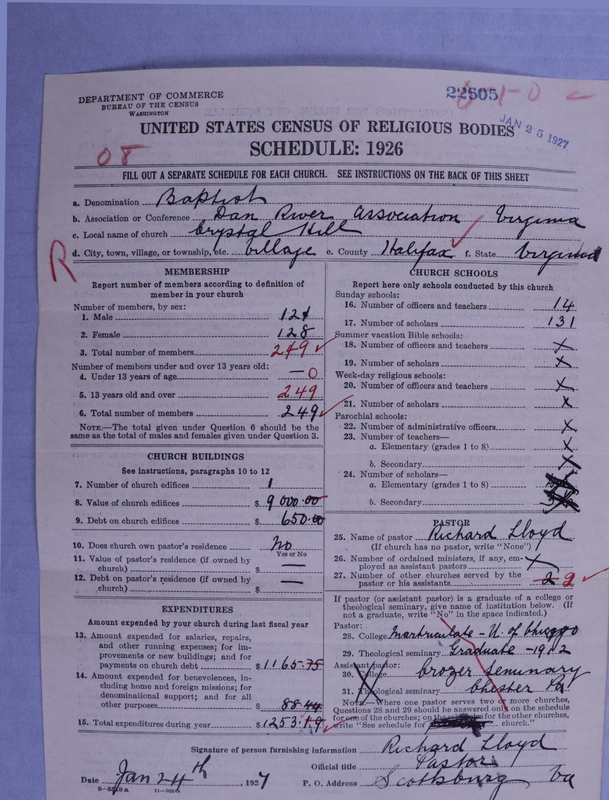 DEPARTMENT OF COMMERCE
BUREAU OF THE CENSUS
WASHINGTON
22605
JAN 25 1927
UNITED STATES CENSUS OF RELIGIOUS BODIES
SCHEDULE: 1926
08
FILL OUT A SEPARATE SCHEDULE FOR EACH CHURCH. SEE INSTRUCTIONS ON THE BACK OF THIS SHEET
a. Denomination Baptist
b. Association or Conference Dan River Association Virginia
c. Local name of church Crystal Hill
d. City, town, village, or township, etc. Village e. County Halifax f. State Virginia
R
MEMBERSHIP
Report number of members according to definition of
member in your church
Number of members, by sex:
1. Male 121
2. Female 128
3. Total number of members 249
Number of members under and over 13 years old:
4. Under 13 years of age — 0
5. 13 years old and over 249
6. Total number of members 249
NOTE.—The total given under Question 6 should be
the same as the total of males and females given under Question 3.
CHURCH BUILDINGS
See instructions, paragraphs 10 to 12
7. Number of church edifices 1
8. Value of church edifices $ 9000.00
9. Debt on church edifices $ 650.00
10. Does church own pastor's residence No
Yes or No
11. Value of pastor's residence (if owned by
church) $ —
12. Debt on pastor's residence (if owned by
church) $ —
EXPENDITURES
Amount expended by your church during last fiscal year
13. Amount expended for salaries, repairs,
and other running expenses; for im-
provements or new buildings; and for
payments on church debt $ 1165.75
14. Amount expended for benevolences, in-
cluding home and foreign missions; for
denominational support; and for all
other purposes $ 88.44
15. Total expenditures during year $ 1253.19
CHURCH SCHOOLS
Report here only schools conducted by this church
Sunday schools:
16. Number of officers and teachers 14
17. Number of scholars 131
Summer vacation Bible schools:
18. Number of officers and teachers X
19. Number of scholars X
Week-day religious schools:
20. Number of officers and teachers X
21. Number of scholars X
Parochial schools:
22. Number of administrative officers X
23. Number of teachers—
a. Elementary (grades 1 to 8) X
b. Secondary X
24. Number of scholars—
a. Elementary (grades 1 to 8)
b. Secondary
PASTOR
25. Name of pastor Richard Lloyd
(If church has no pastor, write "None")
26. Number of ordained ministers, if any, em-
ployed as assistant pastors X
27. Number of other churches served by the
pastor or his assistants 2 2
If pastor (or assistant pastor) is a graduate of a college or
theological seminary, give name of institution below. (If
not a graduate, write "No" in the space indicated.)
Pastor:
28. College Matriculate - U. of Chicago
29. Theological seminary Graduate - 1912
Assistant pastor:
30. College Crozer Seminary
31. Theological seminary Chester Pa.
NOTE.—Where one pastor serves two or more churches,
Questions 28 and 29 should be answered only on the schedule
for one of the churches; on the schedules for the other churches,
write "See schedule for church."
Signature of person furnishing information Richard Lloyd
Official title Pastor
Date Jan 24th, 1927 P. O. Address Scottsburg Va